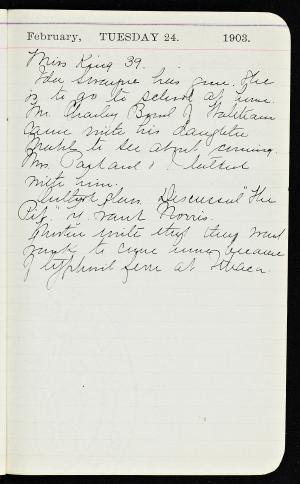 February, TUESDAY 24. 1903.
Miss King 39.
Ida Swayne has gone. She
is to go to school at home.
Mr. Charley Bond of Waltham
came with his daughter
Mabel to see about coming.
Mrs. Packard & I talked
with him.
Culture class. Discussed "The
Pit" by Frank Norris.
write that they want
to come now because
of typhoid fever at Ithaca.